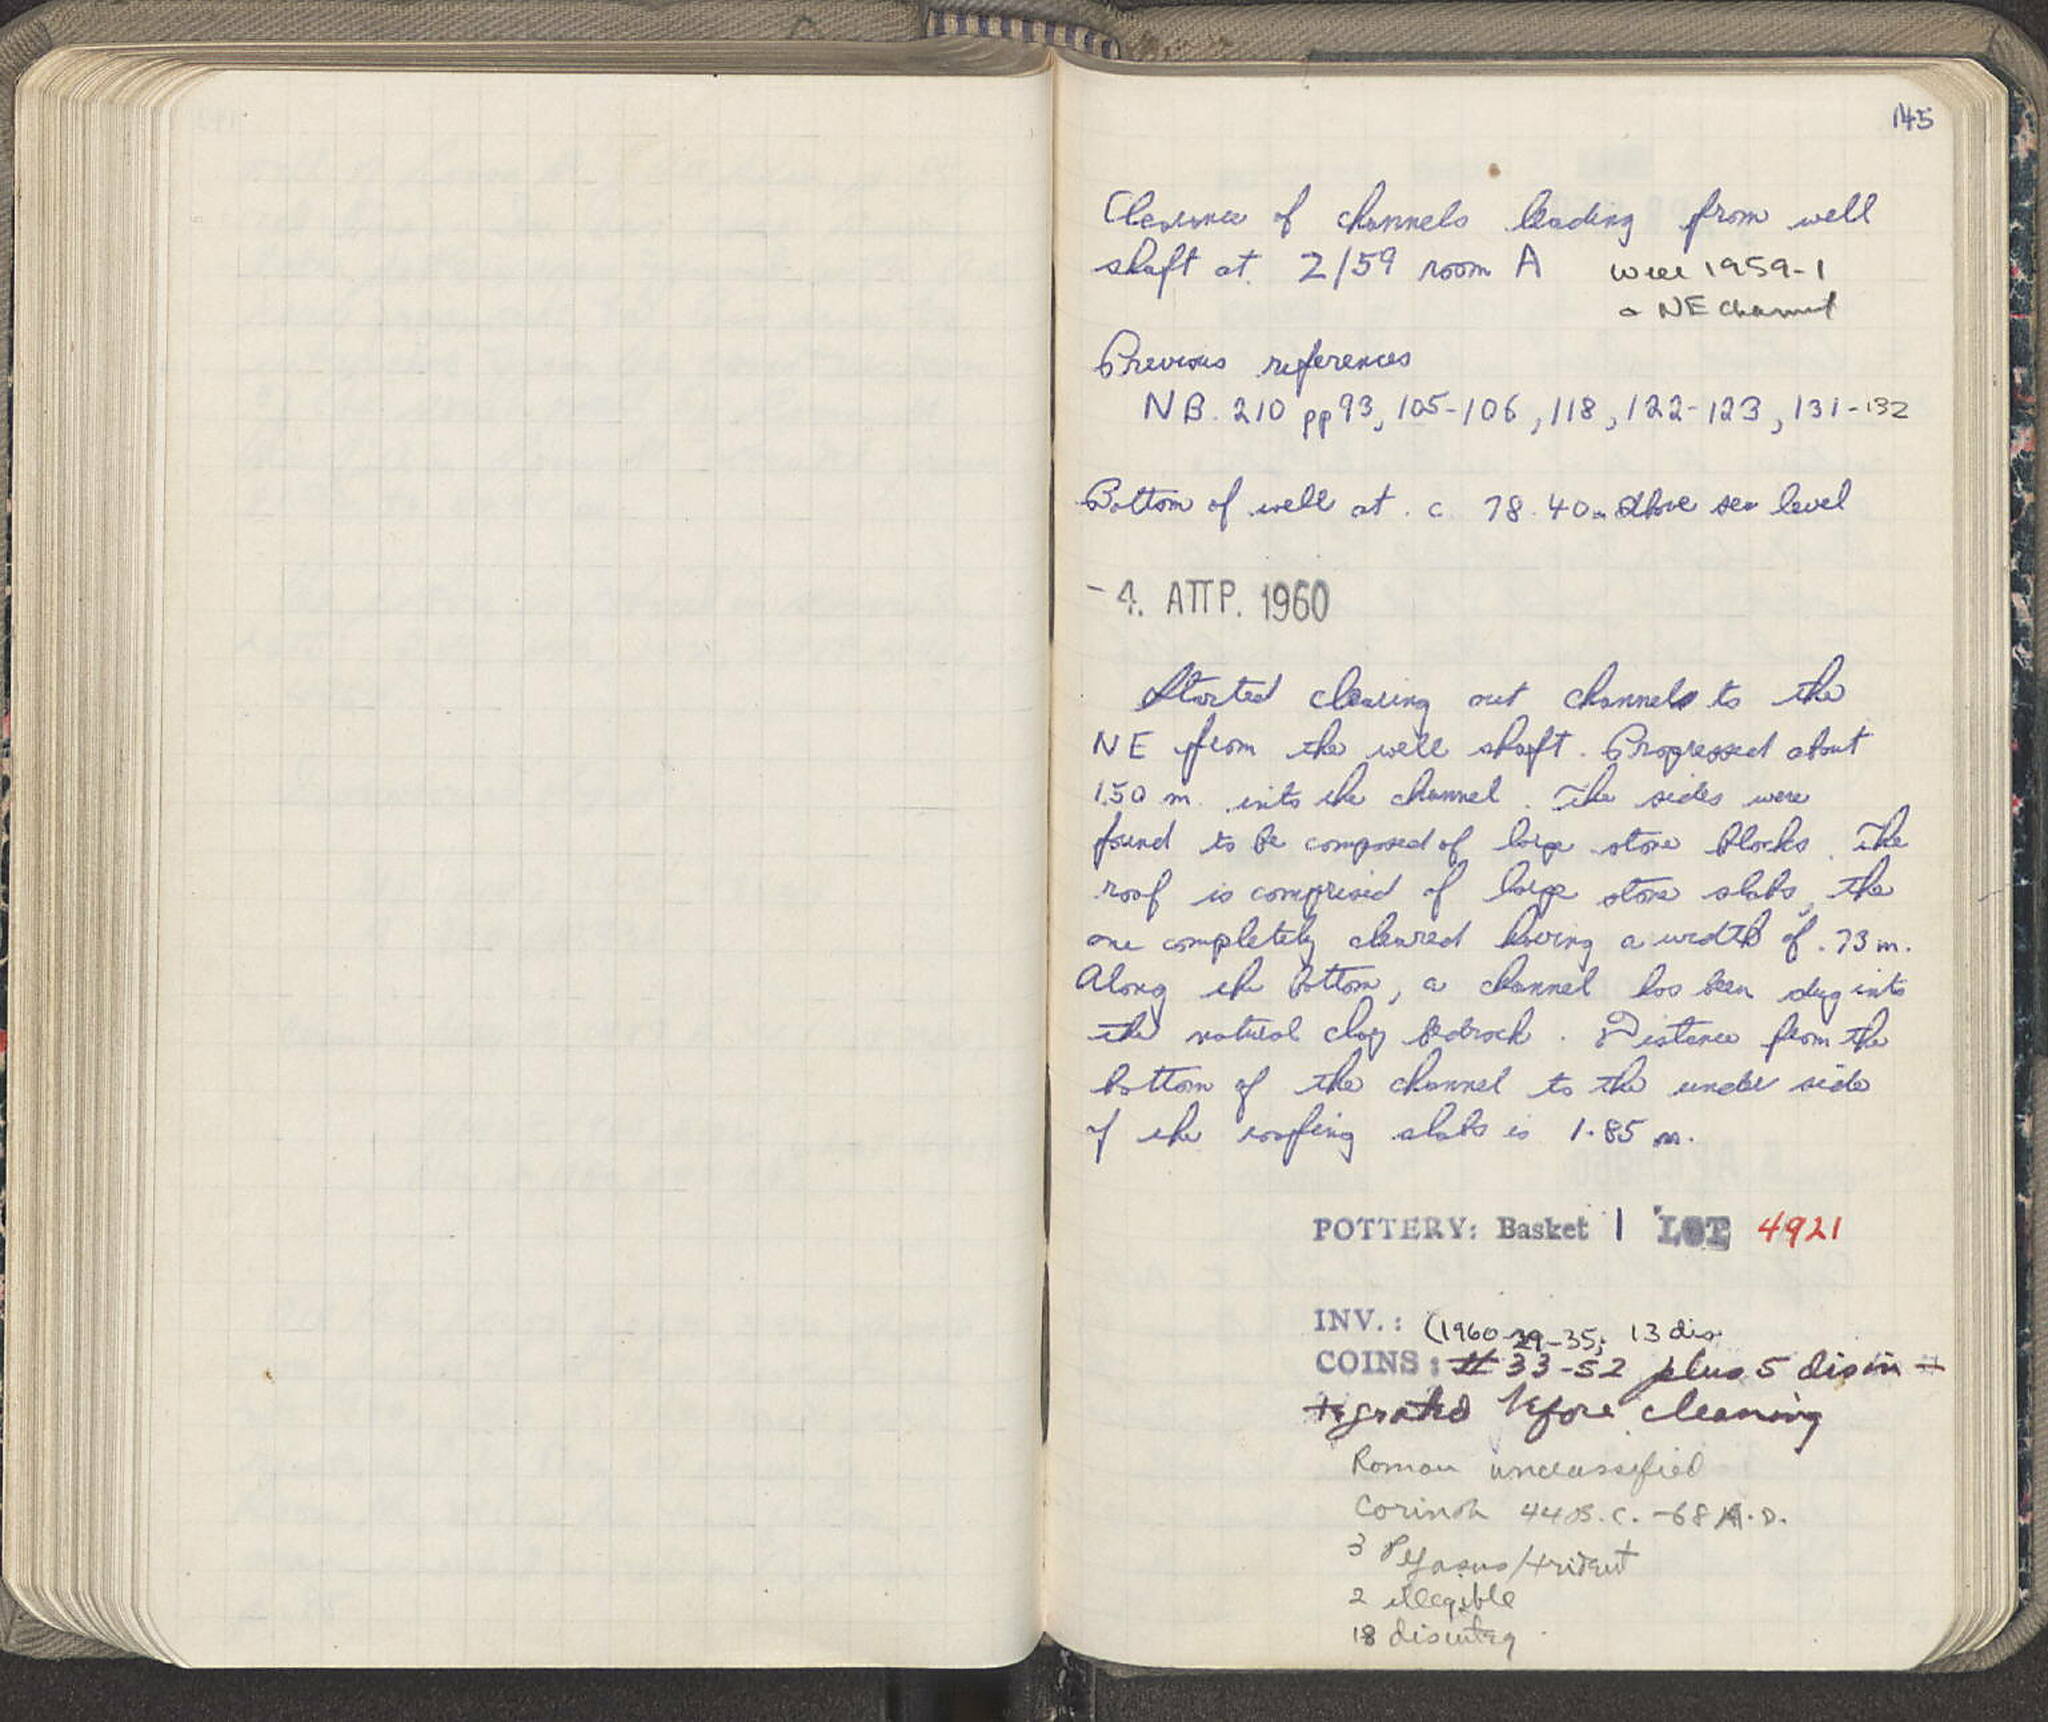 145
Clearance of channels leading from well
shaft at 2/59 room A well 1959-1
NE channel
Previous references
NB. 210 pp 93, 105-106, 118, 122-123, 131-132
Bottom of well at c 78.40 m above sea level
- 4. ΑΠΡ. 1960
Started clearing out channels to the
NE from the well shaft. Progressed about
1.50 m. into the channel. The sides were
found to be composed of large stone blocks. The
roof is comprised of large stone slabs, the
one completely cleared having a width of .73 m.
Along the bottom, a channel has been dug into
the natural clay bedrock. Distance from the
bottom of the channel to the under side
of the roofing slabs is 1.85 m.
POTTERY: Basket 1 LOT 4921
INV.: (1960-29-35; 13 dis.
COINS: # 33-52 plus 5 disin-
tegrated before cleaning
Roman unclassified
Corinth 44 B.C. - 68 A.D.
3 Pegasus/trident
2 illegible
18 disinteg.